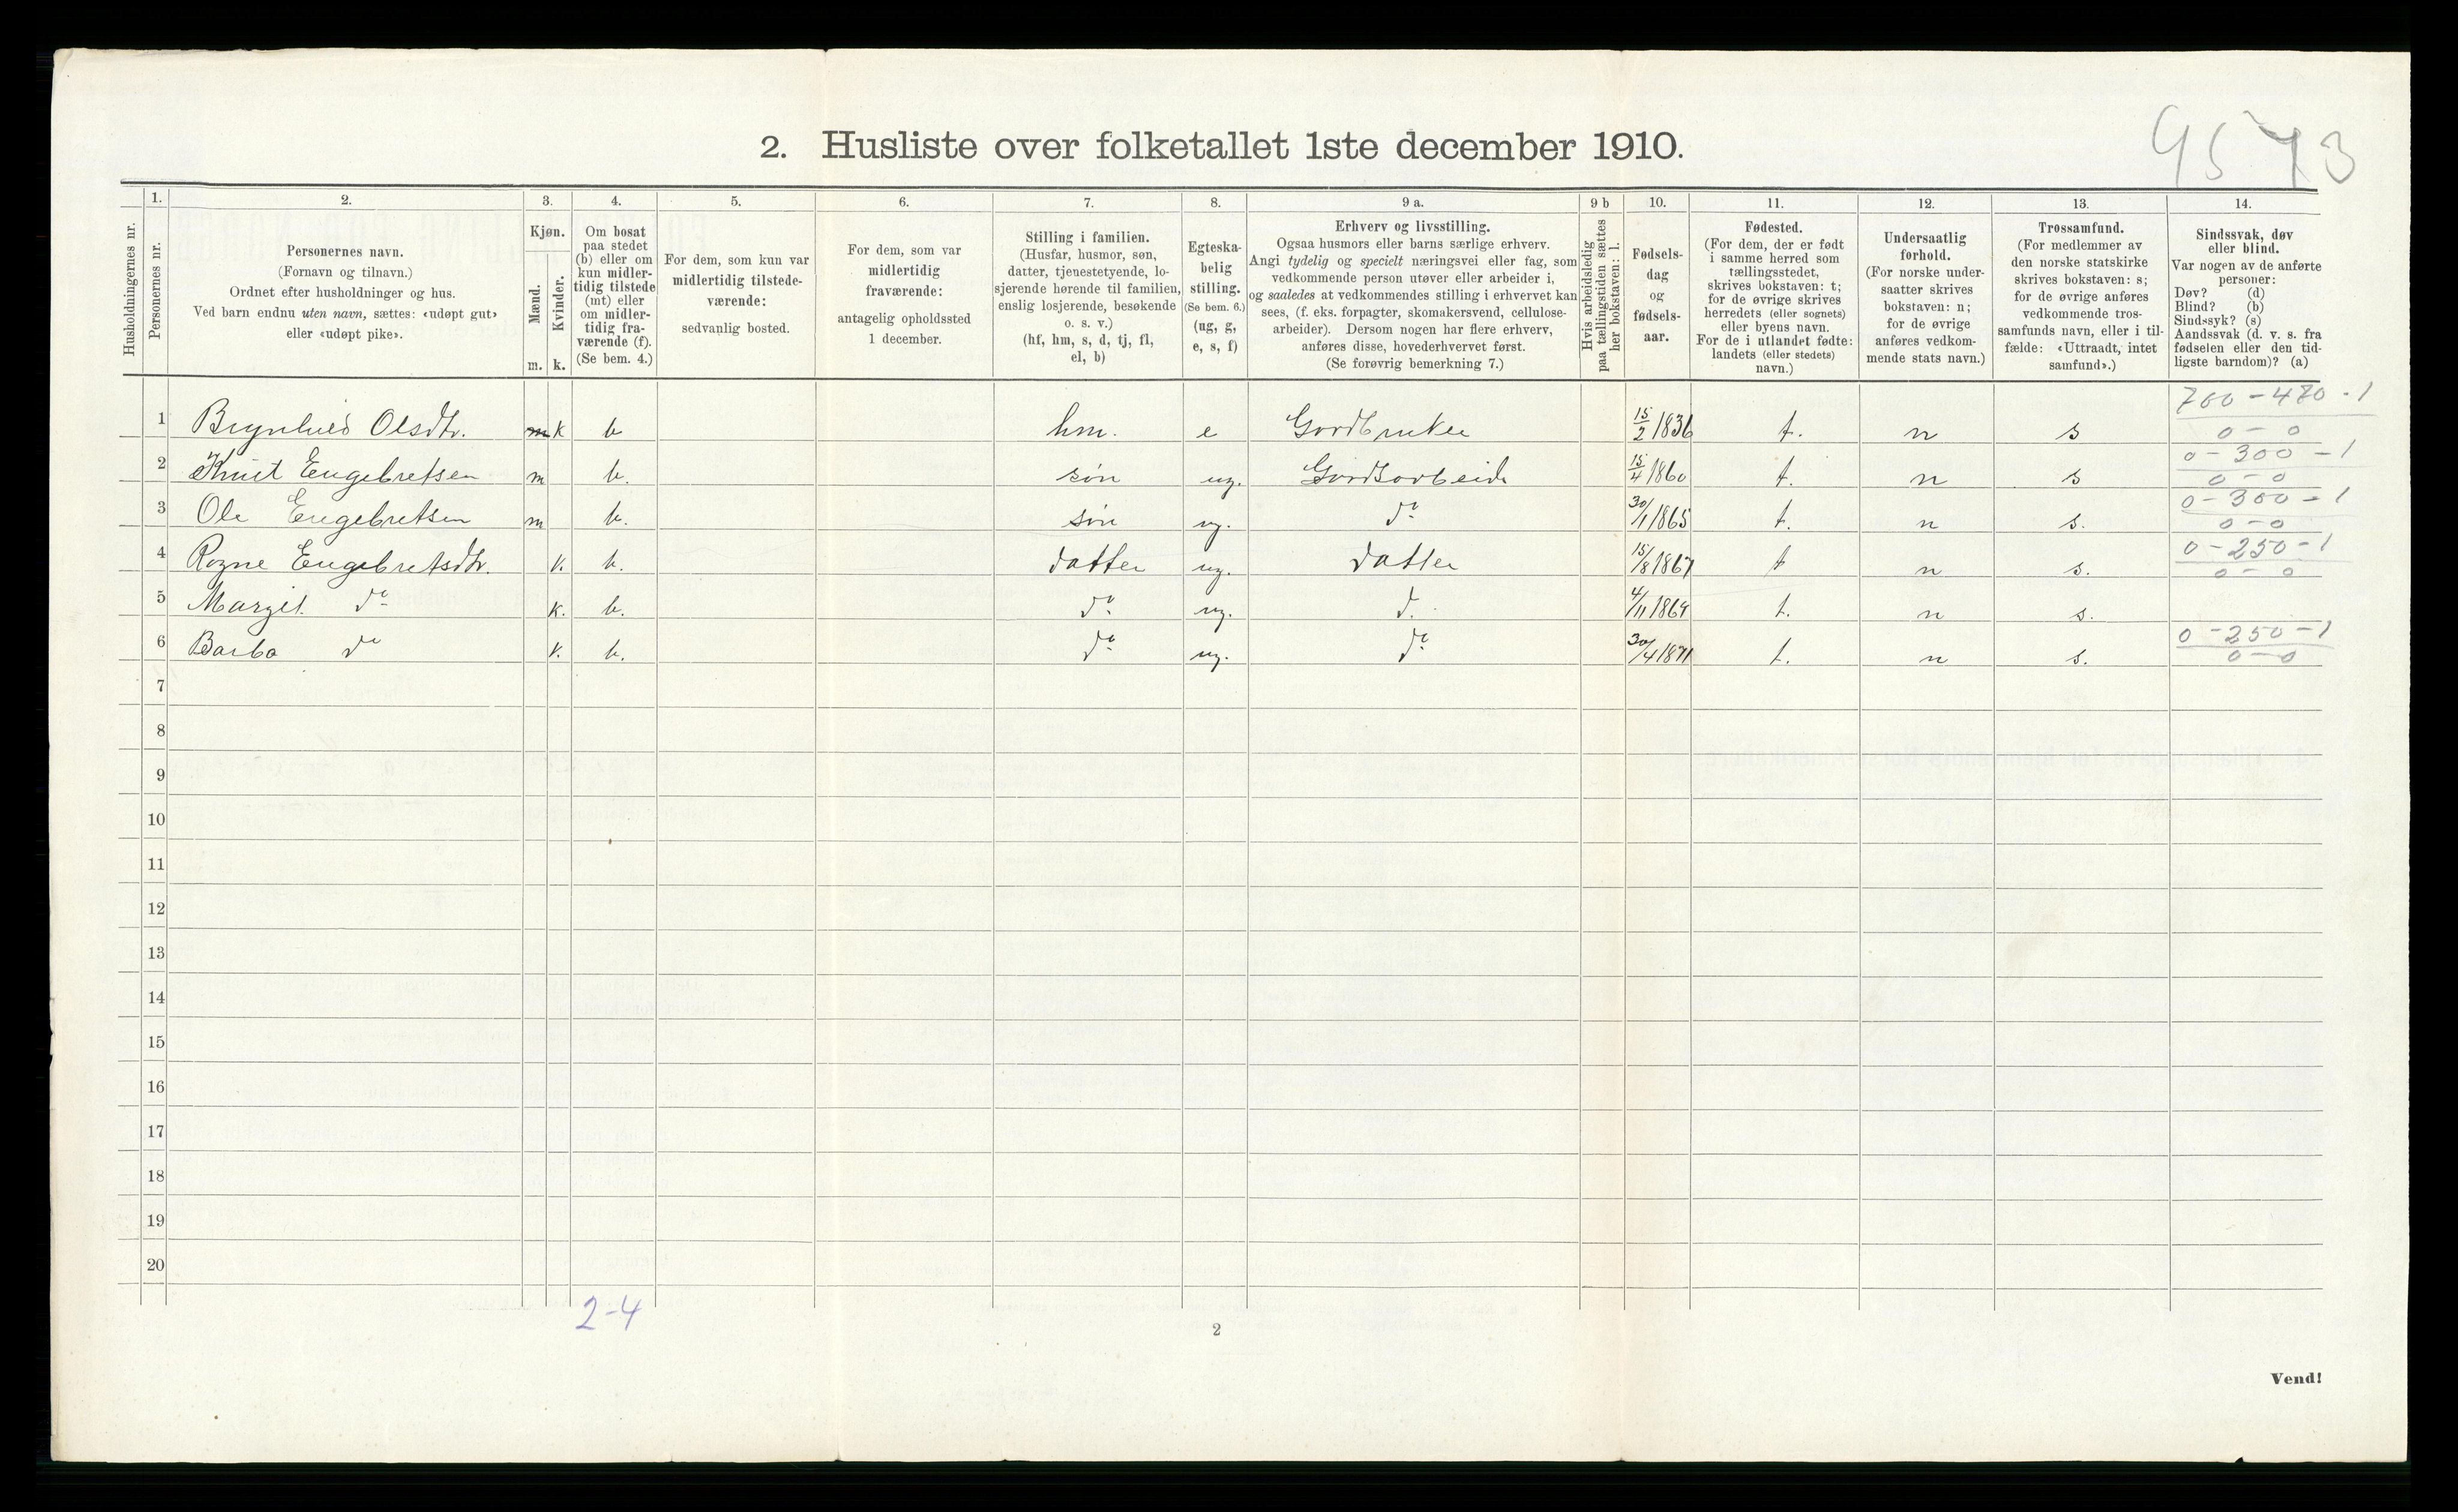 9573
2. Husliste over folketallet 1ste december 1910.
1. 2. 3. 4. 5. 6. 7. 8. 9 a. 9 b 10. 11. 12. 13. 14.
Husholdningernes nr.
Personernes nr.
Personernes navn.
(Fornavn og tilnavn.)
Ordnet efter husholdninger og hus.
Ved barn endnu uten navn, sættes: «udøpt gut»
eller «udøpt pike».
Kjøn.
Mænd.
Kvinder.
m. k.
Om bosat
paa stedet
(b) eller om
kun midler-
tidig tilstede
(mt) eller
om midler-
tidig fra-
værende (f).
(Se bem. 4.)
For dem, som kun var
midlertidig tilstede-
værende:
sedvanlig bosted.
For dem, som var
midlertidig
fraværende:
antagelig opholdssted
1 december.
Stilling i familien.
(Husfar, husmor, søn,
datter, tjenestetyende, lo-
sjerende hørende til familien,
enslig losjerende, besøkende
o. s. v.)
(hf, hm, s, d, tj, fl,
el, b)
Egteska-
belig
stilling.
(Se bem. 6.)
(ug, g,
e, s, f)
Erhverv og livsstilling.
Ogsaa husmors eller barns særlige erhverv.
Angi tydelig og specielt næringsvei eller fag, som
vedkommende person utøver eller arbeider i,
og saaledes at vedkommendes stilling i erhvervet kan
sees, (f. eks. forpagter, skomakersvend, cellulose-
arbeider). Dersom nogen har flere erhverv,
anføres disse, hovederhvervet først.
(Se forøvrig bemerkning 7.)
Hvis arbeidsledig
paa tællingstiden sættes
her bokstaven: l.
Fødsels-
dag
og
fødsels-
aar.
Fødested.
(For dem, der er født
i samme herred som
tællingsstedet,
skrives bokstaven: t;
for de øvrige skrives
herredets (eller sognets)
eller byens navn.
For de i utlandet fødte:
landets (eller stedets)
navn.)
Undersaatlig
forhold.
(For norske under-
saatter skrives
bokstaven: n;
for de øvrige
anføres vedkom-
mende stats navn.)
Trossamfund.
(For medlemmer av
den norske statskirke
skrives bokstaven: s;
for de øvrige anføres
vedkommende tros-
samfunds navn, eller i til-
fælde: «Uttraadt, intet
samfund».)
Sindssvak, døv
eller blind.
Var nogen av de anførte
personer:
Døv? (d)
Blind? (b)
Sindssyk? (s)
Aandssvak (d. v. s. fra
fødselen eller den tid-
ligste barndom)? (a)
700 - 470 - 1
1 Brynhild Olsdtr. m k b hm. e Gordbruker 15/2 1836 t. n s 0 - 0
0 - 300 - 1
2 Knut Engebretsen m b. søn ug. Gordsorbeide 15/4 1860 t. n s 0 - 0
0 - 300 - 1
3 Ole Engebretsen m b. søn ug. do 30/11 1865 t. n s. 0 - 0
0 - 250 - 1
4 Rogne Engebretsdtr. k. b. datter ug. datter 15/8 1867 t n s. 0 - 0
5 Margit do k. b. do ug. d. 4/11 1869 t. n s.
0 - 250 - 1
6 Barbo do k. b. do ug. do 30/4 1871 t. n s. 0 - 0
7
8
9
10
11
12
13
14
15
16
17
18
19
20
2-4
2
Vend!